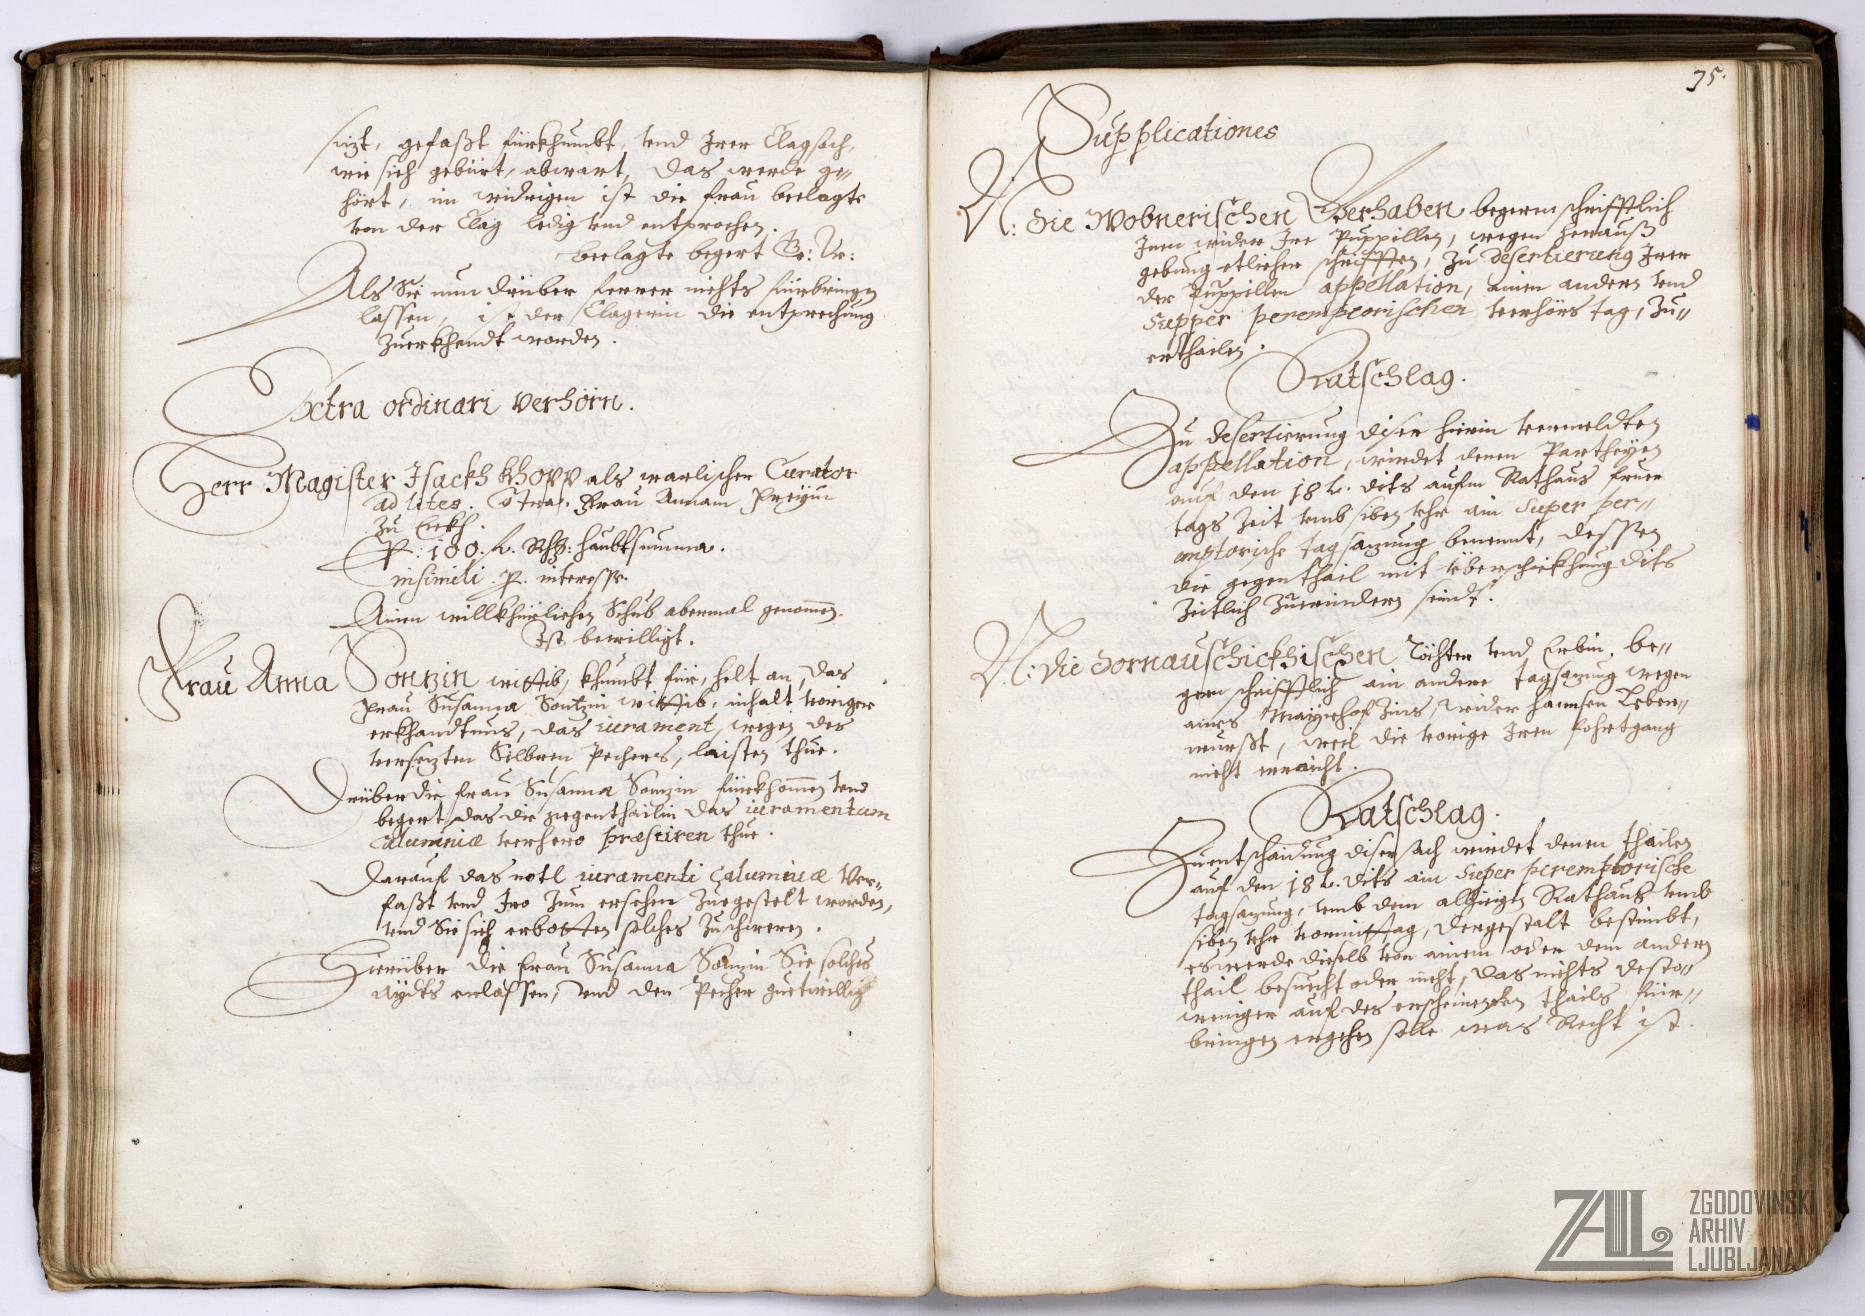 sizt, gefaßt fürkhumbt, vnd Irer Clagsach,
wie sich gebürt, abwart, das werde ge„
hört, im widrigen ist die Frau beclagte
von der Clag ledig vnd entsprochen.
beclagte begert Gr: Vr:
Als Sie nun darüber ferrer nichts fürbringen
lassen, ist der Clagerin die entsprechung
zuerkhendt worden.
Extra ordinari Verhörn.
Herr Magister Isackh Khopp als
Curator
ad lites. Contra. Frau Annam
Zu Eckh.
P. 100. f. Rh: haubtsumma.
insimili. P. interesse.
Ainen willkhürlichen Schub abermal genommen.
Ist bewilligt.
Frau Anna Sonzin wittib, khumbt für, helt an, das
Frau Susanna Sontzin wittib, inhalt voriger
erkhandtnus, das iurament, wegen des
versezten Silbren Pechers, laisten thue.
Drüber die Frau Susanna Sonzin fürkhommen vnd
begert, das die gegenthailin das iuramentum
calumniæ vorhero præstiren thue.
Darauf das notl iuramenti Calumniæ Ver„
faßt vnd Iro zum ersehen zuegestelt worden,
vnd Sie sich erbotten solches zuschweren.
Hierüber die Frau Susanna Sonzin Sie solches
Aydts erlassen, vnd den Pecher guetwillig
75.
Supplicationes
N: die Wobnerischen Gerhaben begern schrifftlich
Inen wider Ire Puppillen, wegen herauß
gebung etlicher schrifften, zu desertierung Irer
der Puppillen appellation, ainen andern vnd
Supper peremptorischen verhörs tag, zu„
erthailen.
Ratschlag.
Zu desertierung diser hierin vermeldten
appellation, wirdet denen Partheyen
auf den 18 t. dits aufm Rathaus fruer
tags zeit vmb siben vhr ain Super per„
emptorische tagsazung benent, dessen
die gegenthail mit überschickhung dits
zeitlich zuerindern seindt.
N: die Dornauschickhischen Töchter vnd Erbin, be„
gern schrifftlich ain andere tagsazung wegen
aines Mayrhof Zins, wider hannsen Leber„
wurßt, weil die vorige Iren fohrtgang
nicht erraicht.
Ratschlag.
Zu entschaidung diser sach wirdet denen thailen
auf den 18 t. dits ain Super peremptorische
tagsazung, vmb dem alhieigen Rathaus vmb
siben vhr vormittag, dergestalt bestimbt,
es werde dieselb von ainem oder dem andern
thail besuecht oder nicht, das nichts desto„
weniger auf des erscheinenden thails für„
bringen ergehen solle was Recht ist.
ZAL
ZGODOVINSKI
ARHIV
LJUBLJANA